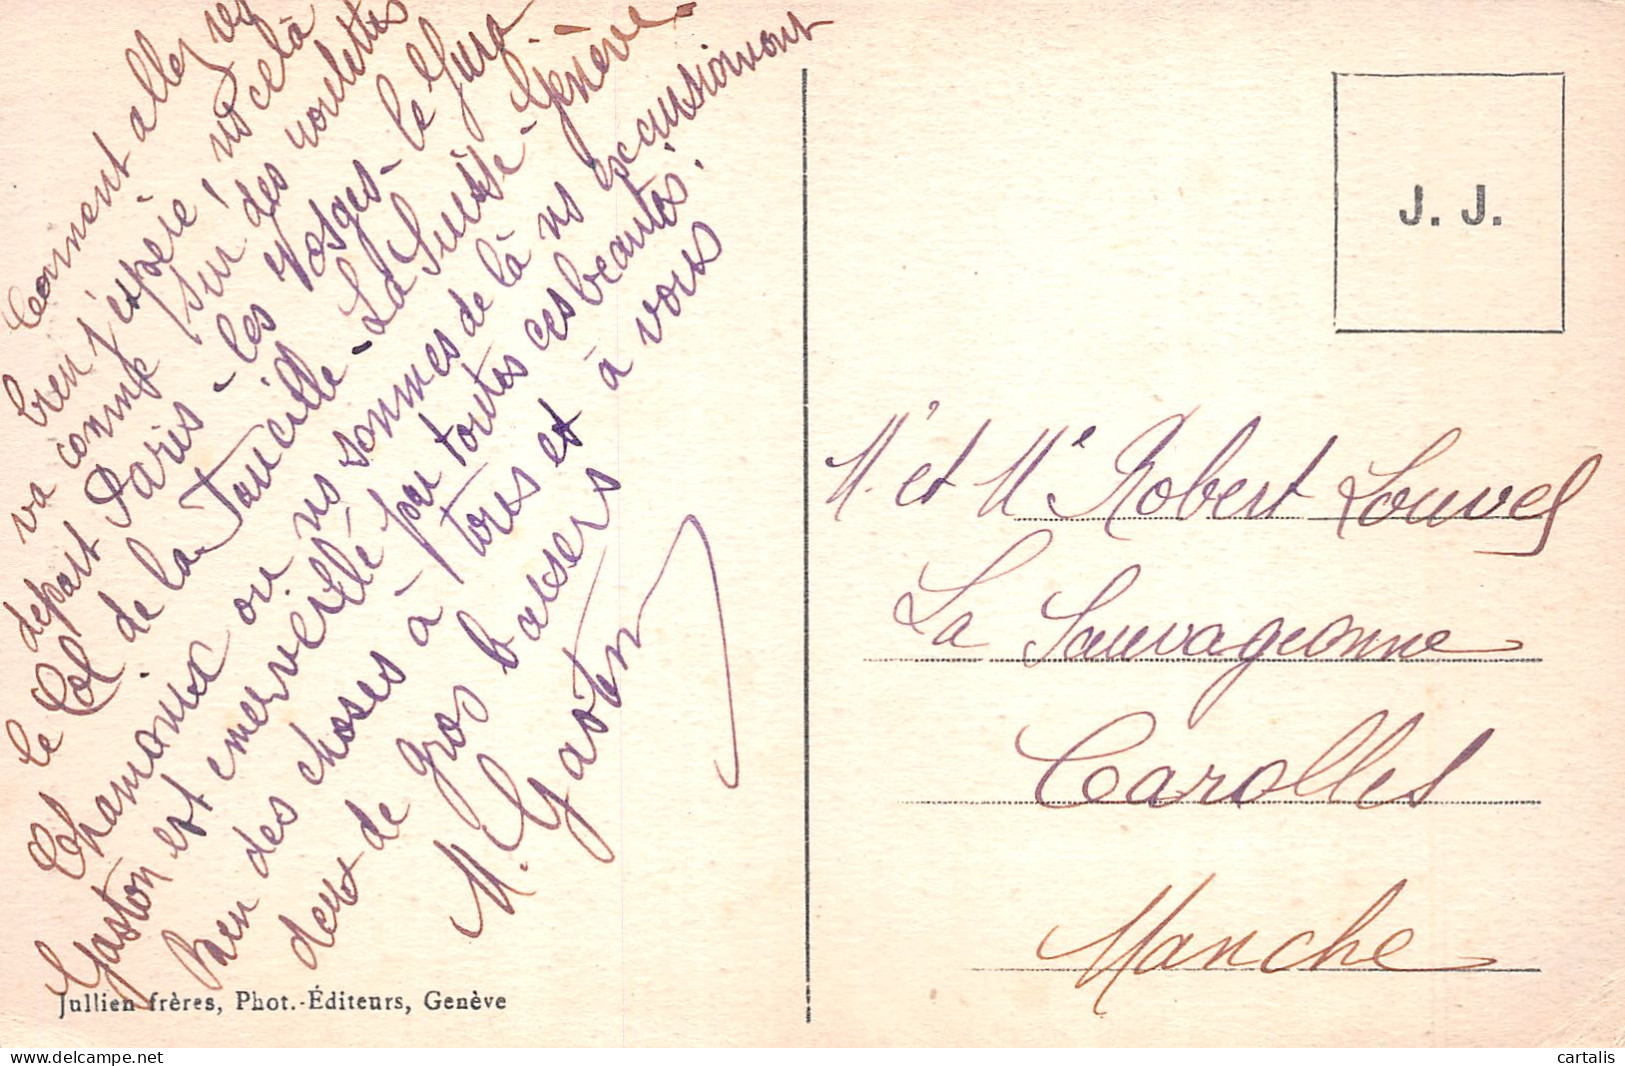 Comment allez vs
bien j'espère! ns cela
va comme sur des roulettes
départ Paris - les Vosges - le Jura -
le Col de la Faucille - La Suisse - Genève -
Chamonix où ns sommes de là ns excursionnont
Gaston est émerveillé par toutes ces beautés.
Bien des choses à tous et à vous
deux de gros baisers
M. Gaston
Jullien frères, Phot.-Éditeurs, Genève
J. J.
M. et Me Robert Louvel
La Sauvageonne
Carolles
Manche
cartalis